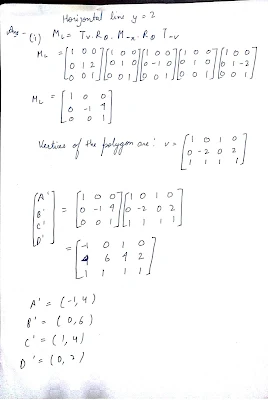 Horizontal line y = 2
Ans - (i) M_L = T_v. R_θ. M_-x. R_θ T_-v
M_L = [1 0 0] [1 0 0] [1 0 0] [1 0 0] [1 0 0]
[0 1 2] [0 1 0] [0 -1 0] [0 1 0] [0 1 -2]
[0 0 1] [0 0 1] [0 0 1] [0 0 1] [0 0 1]
M_L = [1 0 0]
[0 -1 4]
[0 0 1]
Vertices of the polygon are: v = [-1 0 1 0]
[0 -2 0 2]
[1 1 1 1]
[A'] = [1 0 0] [-1 0 1 0]
[B'] [0 -1 4] [0 -2 0 2]
[C'] [0 0 1] [1 1 1 1]
[D']
= [-1 0 1 0]
[4 6 4 2]
[1 1 1 1]
A' = (-1, 4)
B' = (0, 6)
C' = (1, 4)
D' = (0, 2)